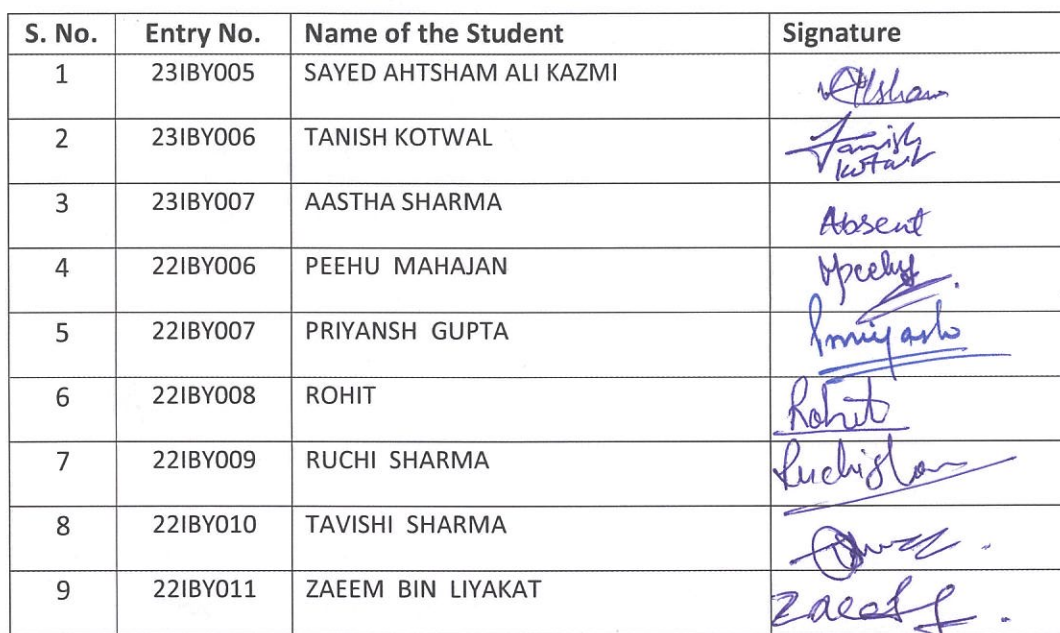 S. No. Entry No. Name of the Student Signature
1 23IBY005 SAYED AHTSHAM ALI KAZMI
2 23IBY006 TANISH KOTWAL Tanish
3 23IBY007 AASTHA SHARMA Absent
4 22IBY006 PEEHU MAHAJAN
5 22IBY007 PRIYANSH GUPTA
6 22IBY008 ROHIT Rohit
7 22IBY009 RUCHI SHARMA
8 22IBY010 TAVISHI SHARMA
9 22IBY011 ZAEEM BIN LIYAKAT